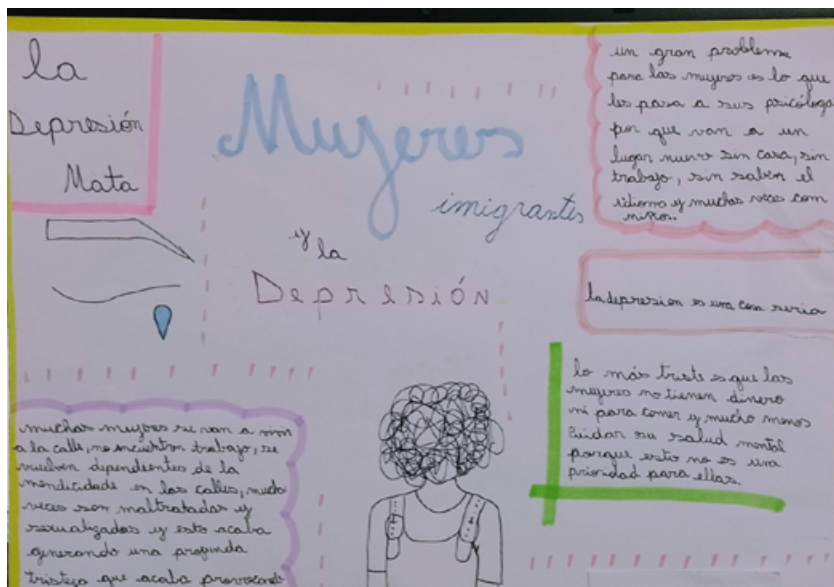 la
Depresión
Mata
Mujeres
imigrantes
y la
Depresión
un gran problema
para las mujeres es lo que
les pasa a sus psicóloga
por que van a un
lugar nuevo sin casa, sin
trabajo, sin saber el
idioma y muchas veces com
niños.
la depresion es una cosa seria
lo más triste es que las
mujeres no tienen dinero
ni para comer y mucho menos
cuidar su salud mental
porque esto no es una
prioridad para ellas.
muchas mujeres se van a vivir
a la calle, no encuentran trabajo, se
vuelven dependientes de la
mendicidade en las calles,
veces son maltratadas y
sexualizadas y esto acaba
generando una profunda
tristeza que acaba provocando